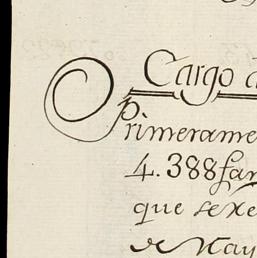 Cargo
Primerame
4.388 fan
que se
de